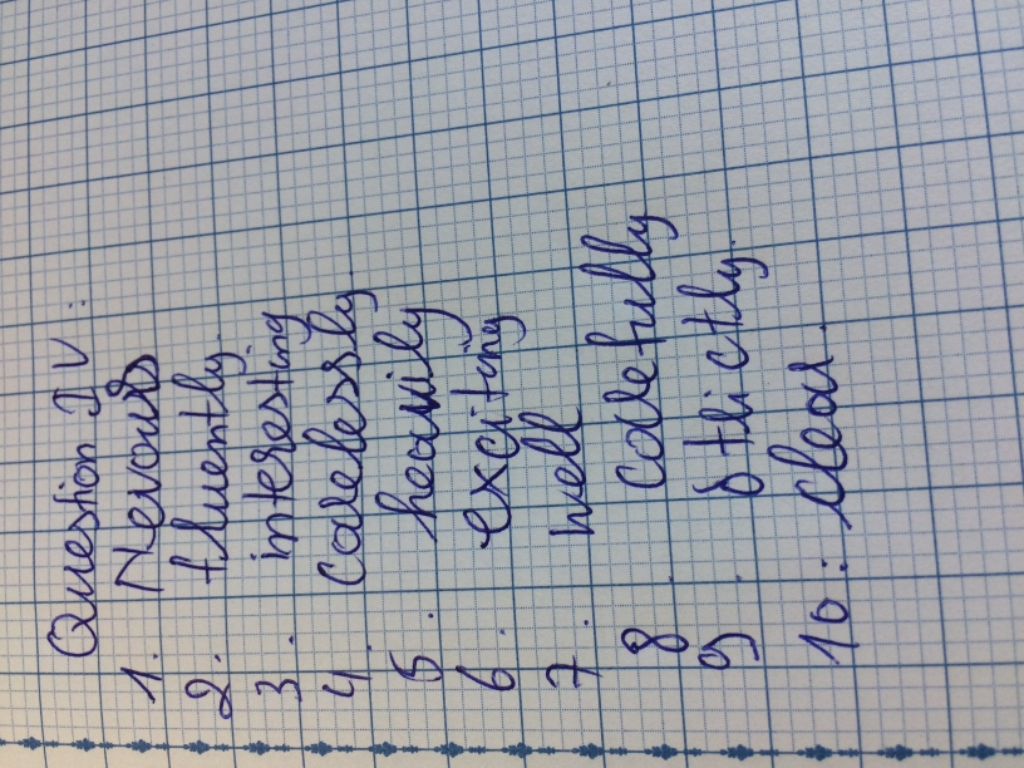 Question IV:
1. Nevous
2. fluently.
3. interesting
4. carelessly
5. heavily
6. exciting
7. well
8. carefully
9. strictly.
10: clear.